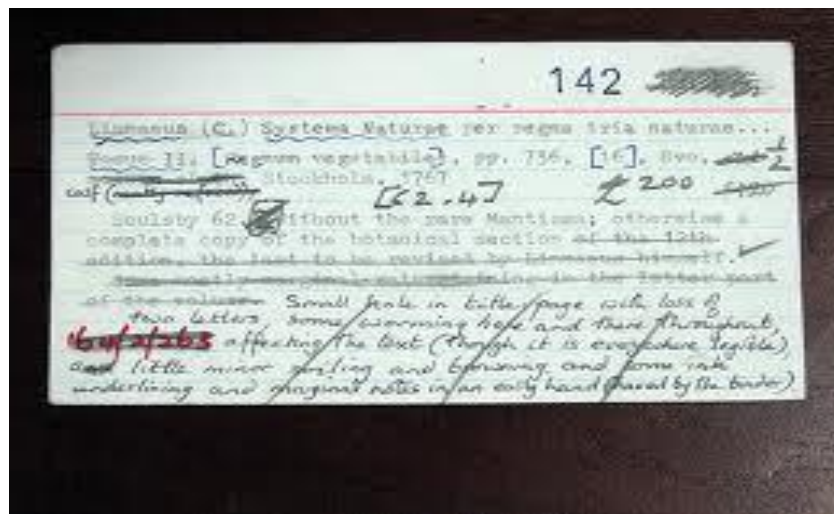 142
Linnaeus (C.) Systema Naturae per regna tria naturae...
Tomus II. [Regnum vegetabile], pp. 736, [16], 8vo, 1/2
calf Stockholm, 1767
[62.4] £ 200
Soulsby 62. Without the rare Mantissa; otherwise a
complete copy of the botanical section of the 12th
edition, the last to be revised by Linnaeus himself.
marginal in the latter part
of the volume. Small hole in title page with loss of
two letters some worming here and there throughout,
affecting the text (though it is everywhere legible),
and little minor soiling and browning and some ink
underlining and marginal notes in an early hand (shaved by the binder)